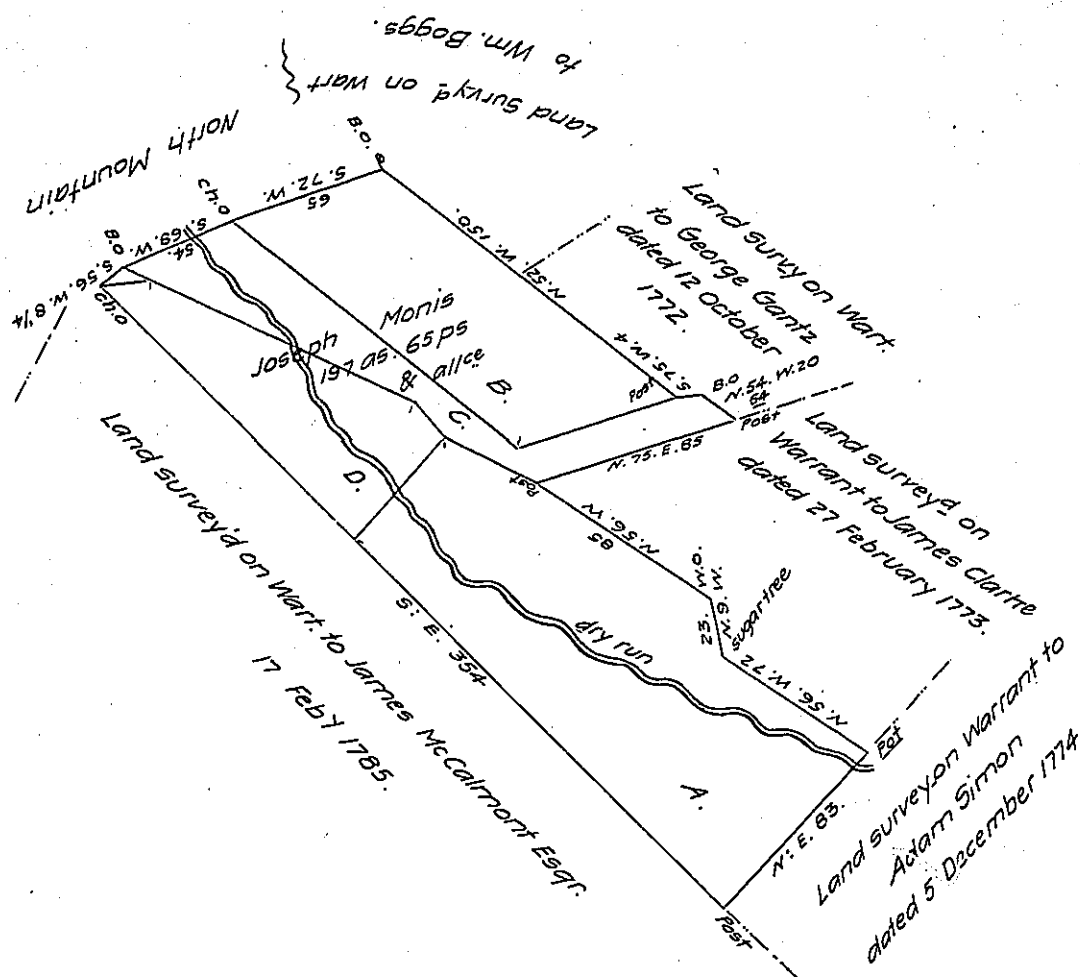 to Wm. Boggs.
Land Survyd on Wart
North Mountain
B.O.
S. 72. W.
65
ch.o
S. 69. W.
54.
B.O
S. 56. W. 8¼
ch.o
N. 52. W. 150.
Land Survy on Wart.
to George Gantz
dated 12 October
1772.
Joseph Monis
197 as. 65 ps
& allce
B.
S. 75. W. 4
Post
B.O
N. 54. W. 20
64
Post
N. 75. E. 85
Land survey'd on
Warrant to James Clarke
dated 27 February 1773.
C.
D.
Post
N. 56. W
85
W.O.
N. 9. W.
23.
sugartree
N. 56. W. 72
Pot
dry run
Land survey'd on Wart. to James McCalmont Esqr.
17 Feby 1785.
S: E. 354
A.
N: E. 83.
Post
Land survey on Warrant to
Adam Simon
dated 5 December 1774